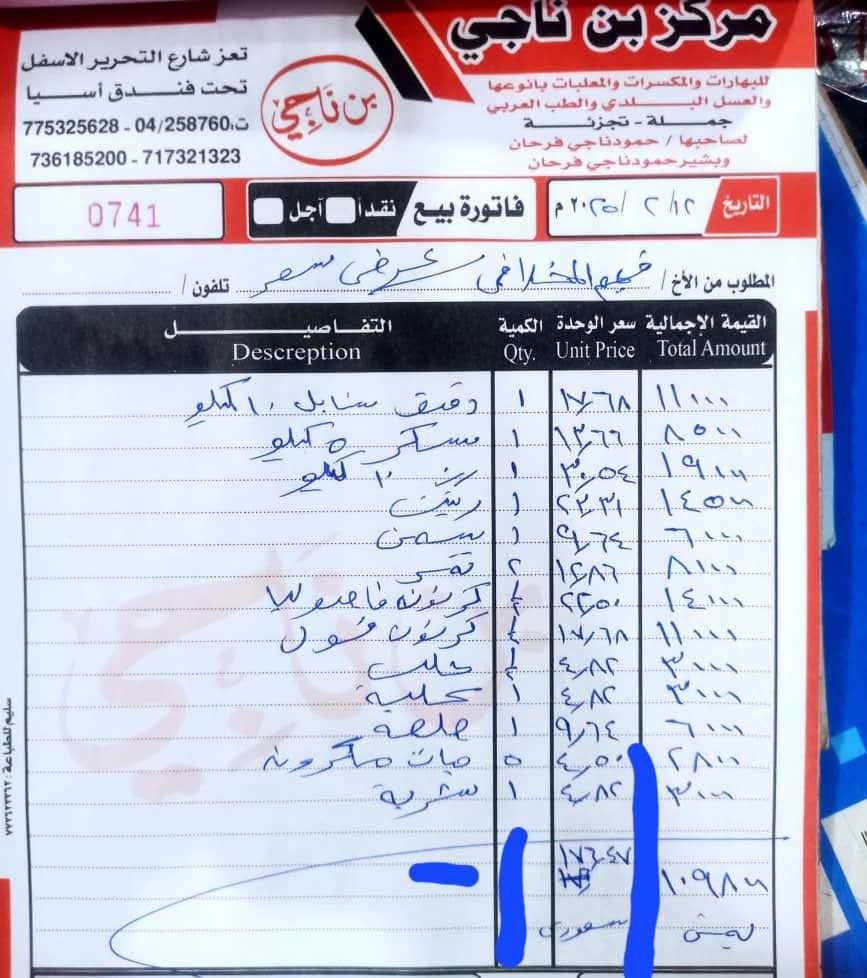 مركز بن ناجي
للبهارات والمكسرات والمعلبات بانوعها
والعسل البلدي والطب العربي
جملة - تجزئة
لصاحبها / حمود ناجي فرحان
وبشير حمود ناجي فرحان
بن ناجي
تعز شارع التحرير الاسفل
تحت فندق أسيا
ت: 04/258760 - 775325628
717321323 - 736185200
التاريخ ١٢/ ٢ /٢٠٢٥م
فاتورة بيع نقداً آجل
0741
المطلوب من الأخ / المخلافي عرض سعر تلفون /
القيمة الإجمالية سعر الوحدة الكمية التفاصيل
Total Amount Unit Price Qty. Descreption
١١٠٠٠ ١٧,٦٨ ١ دقيق سنابل ١٠ كيلو
٨٥٠٠ ١٣,٦٦ ١ سكر ٥ كيلو
١٩٠٠٠ ٣٠,٥٤ ١ رز ١٠ كيلو
١٤٥٠٠ ٢٣,٣١ ١ زيت
٦٠٠٠ ٩,٦٤ ١ سمن
٨٠٠٠ ١٢,٨٦ ٢ تمر
١٤٠٠٠ ٢٢,٥٠ كرتون فاصوليا
١١٠٠٠ ١٧,٦٨ كرتون فول
٣٠٠٠ ٤,٨٢
٣٠٠٠ ٤,٨٢ ١
٦٠٠٠ ٩,٦٤ ١ صلصة
٢٨٠٠ ٤,٥٠ ٥ حبات مكرونه
٣٠٠٠ ٤,٨٢ ١ شربة
١٠٩٨٠٠ ١٧٦,٤٧
سعودي
بن ناجي
سليم للطباعة: